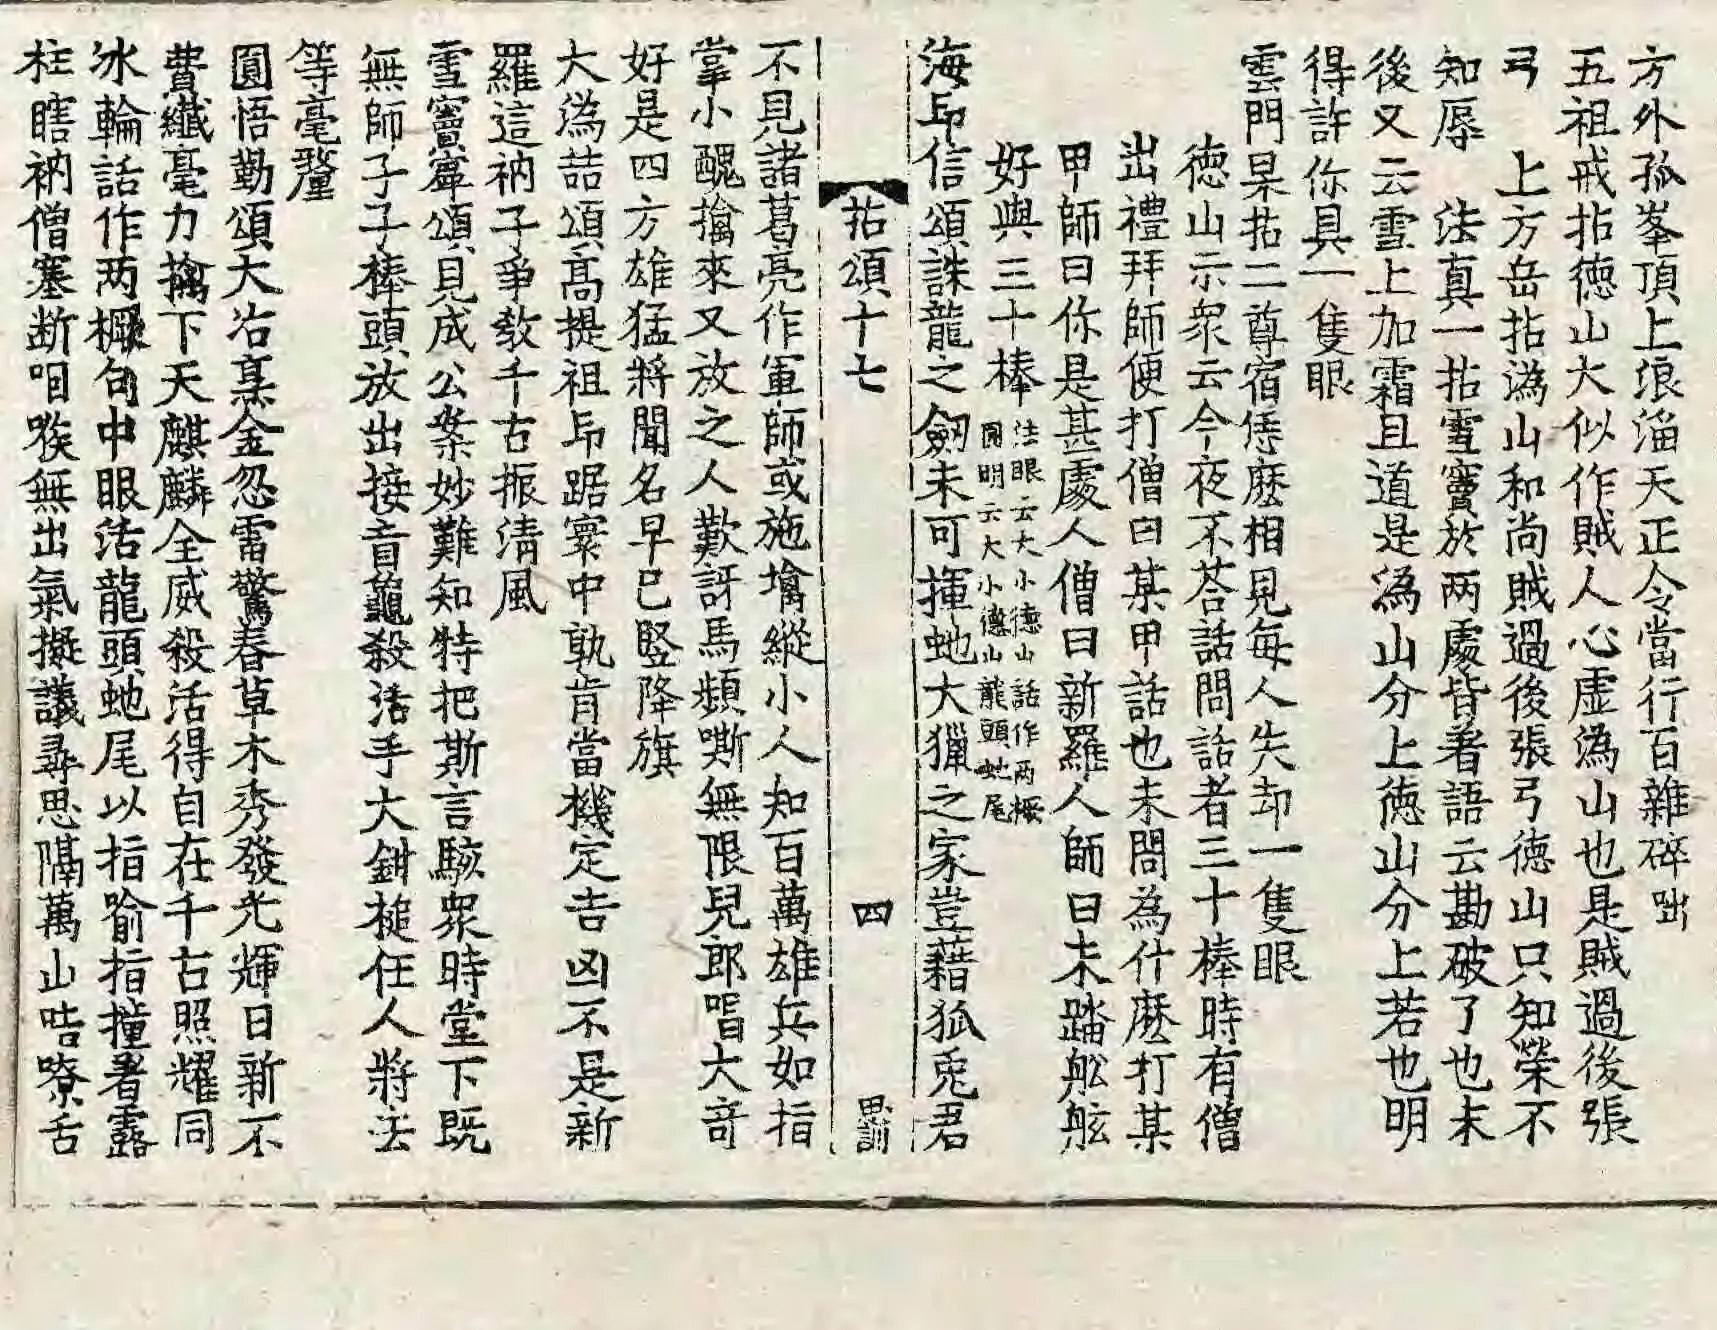 方外孤峯頂上浪滔天正令當行百雜碎咄
五祖戒拈徳山大似作賊人心虛潙山也是賊過後張
弓　上方岳拈潙山和尚賊過後張弓徳山只知榮不
知辱　法真一拈雪竇於两處皆著語云勘破了也未
後又云雪上加霜且道是潙山分上徳山分上若也明
得許你具一隻眼
雲門杲拈二尊宿恁麽相見每人失却一隻眼
徳山示衆云今夜不荅話問話者三十棒時有僧
出禮拜師便打僧曰某甲話也未問為什麽打某
甲師曰你是甚處人僧曰新羅人師曰未踏舩舷
好與三十棒法眼云大小徳山話作两橛
圓明云大小徳山龍頭虵尾
海印信頌誅龍之劒未可揮虵大獵之家豈藉狐兎君
拈頌十七　四
不見諸葛亮作軍師或施擒縱小人知百萬雄兵如指
掌小醜擒來又放之人歎訝馬頻嘶無限兒郎唱大奇
好是四方雄猛將聞名早已竪降旗
大潙喆頌髙提祖印踞寰中孰肯當機定吉凶不是新
羅這衲子爭教千古振清風
雪竇寧頌見成公案妙難知特把斯言駭衆時堂下既
無師子子棒頭放出接盲龜殺活手大鉗槌任人將去
等毫釐
圓悟勤頌大冶烹金忽雷驚春草木秀發光輝日新不
費纖毫力擒下天麒麟全威殺活得自在千古照耀同
冰輪話作两橛句中眼活龍頭虵尾以指喻指撞著露
柱瞎衲僧塞断咽喉無出氣擬議尋思隔萬山咭嘹舌